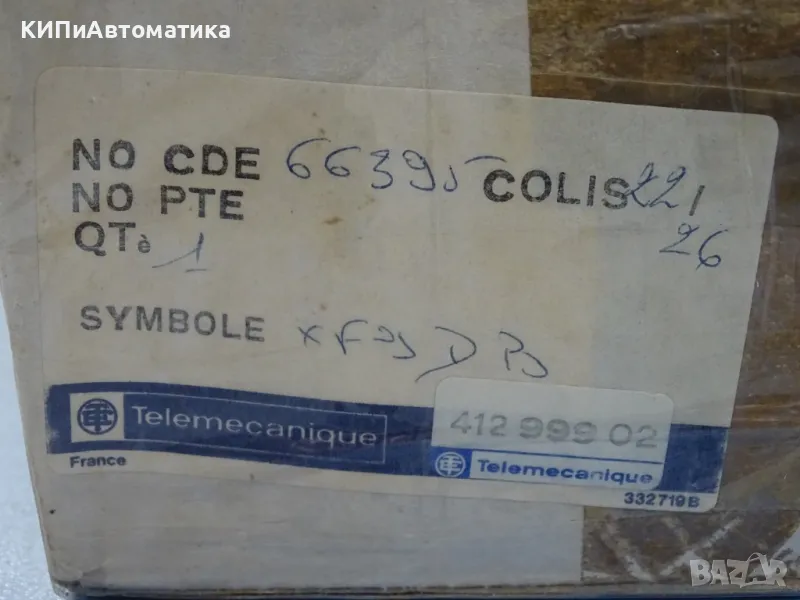 КИПиАвтоматика
NO CDE 66395 COLIS 22/
26
NO PTE
QTè 1
SYMBOLE
Telemecanique
412 999 02
Telemecanique
France
332719B
BAZAR